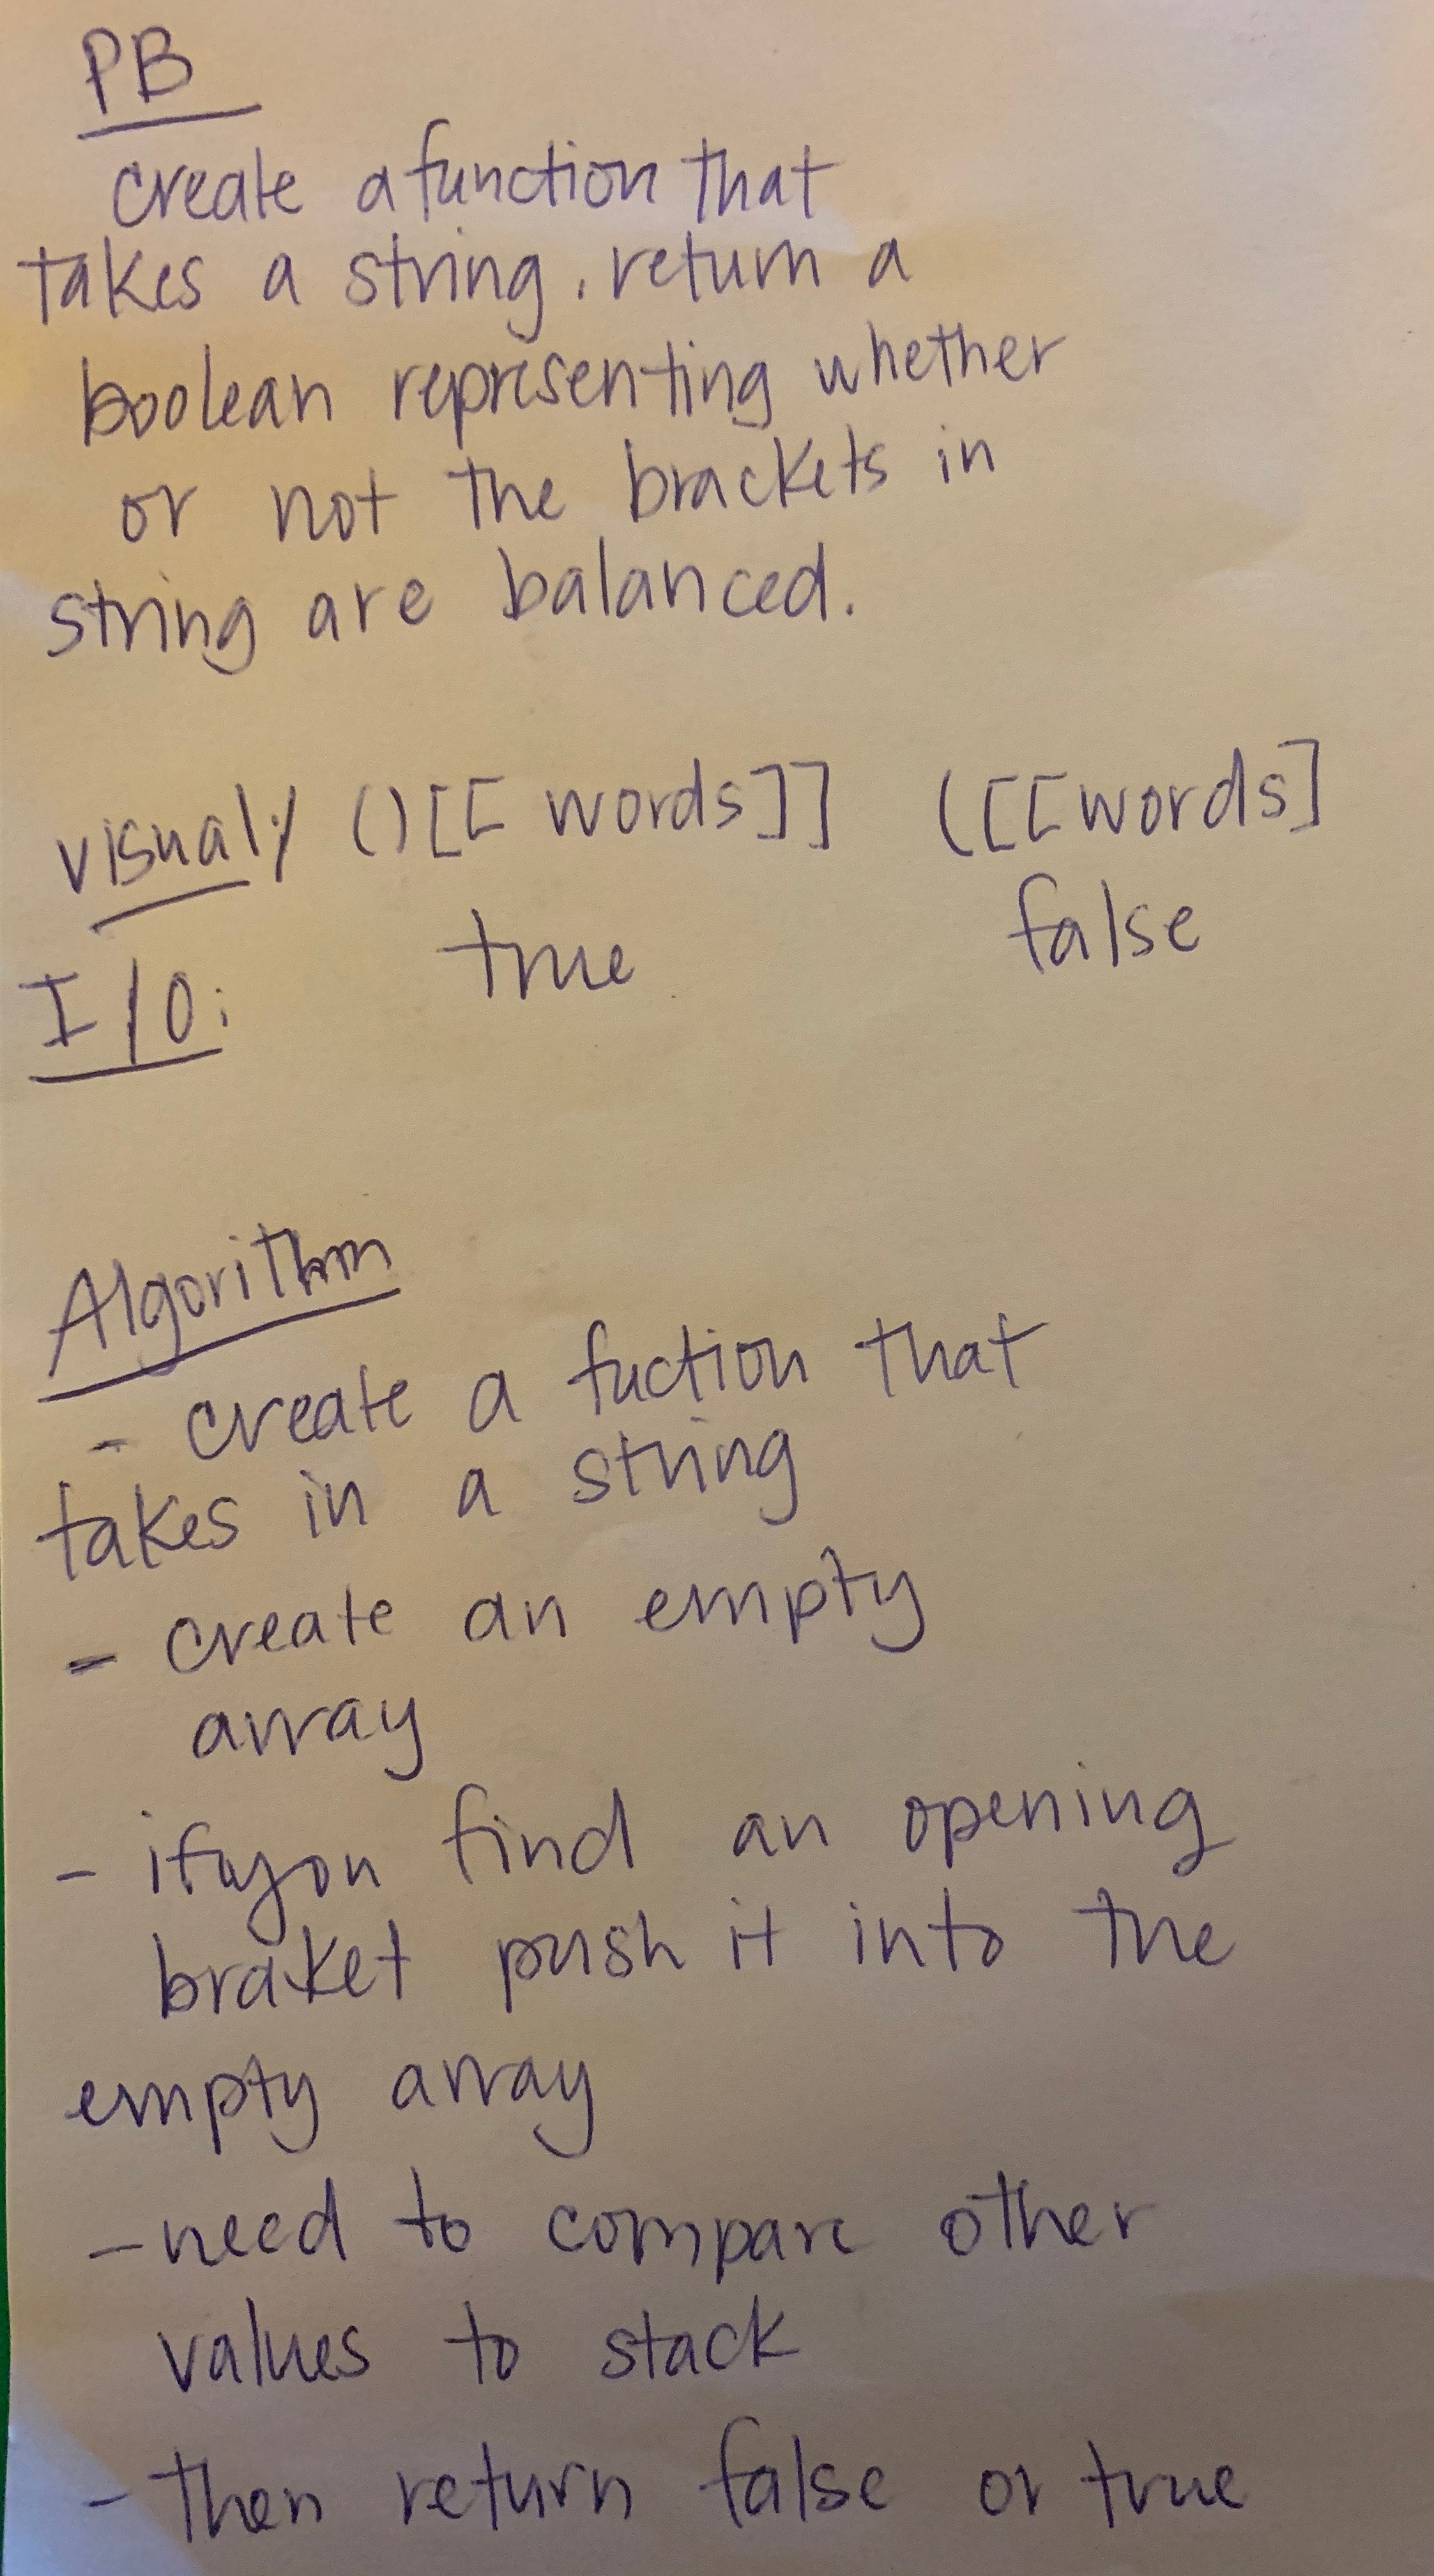 PB
create a function that
takes a string. return a
boolean representing whether
or not the brackets in
string are balanced.
visualy ()[[ words]] ([[words]
true false
I/O:
Algorithm
- create a fuction that
takes in a string
- create an empty
array
- if you find an opening
braket push it into the
empty array
- need to compare other
values to stack
- then return false or true